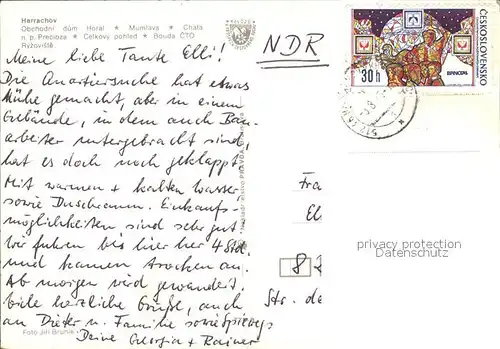 Harrachov
Obchodní dům Horal ★ Mumlava ★ Chata
n. p. Preciosa ★ Celkový pohled ★ Bouda ČTO
Ryžoviště
Meine liebe Tante Elli!
Die Quartiersuche hat etwas
Mühe gemacht, aber in einem
Gebäude, in dem auch Bau-
arbeiter untergebracht sind,
hat es doch noch geklappt.
Mit warmen + kalten Wasser
sowie Duschraum. Einkaufs-
möglichkeiten sind sehr gut
Wir fuhren bis hier her 4 Std.
und kamen trocken an.
Ab morgen wird gewandert.
Viele herzliche Grüße, auch
an Dieter u. Familie sowie
Deine Georgia + Rainer
Foto Jiří
NDR
ČESKOSLOVENSKO
30 h
Fra
El
8
Str. de
privacy protection
Datenschutz